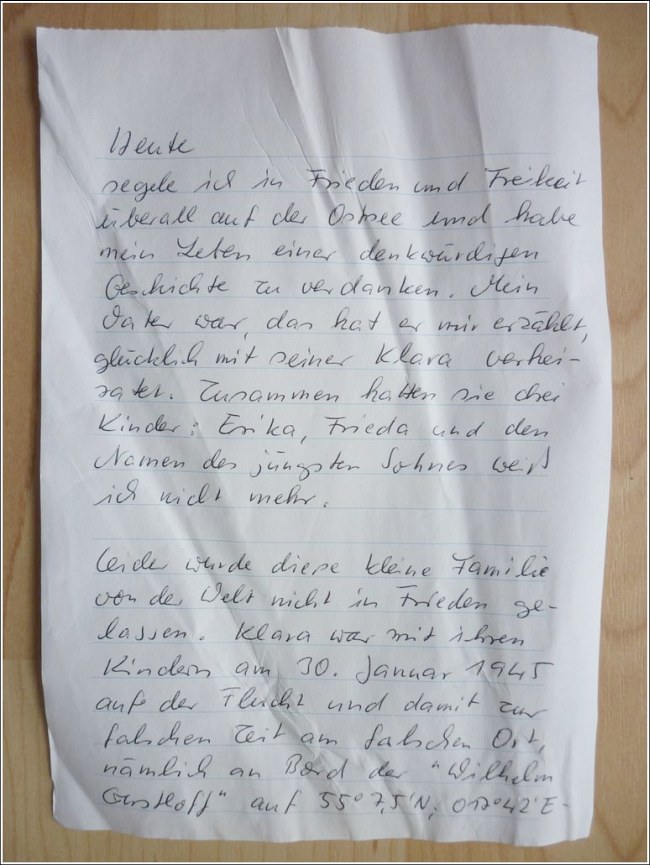 Heute
segele ich in Frieden und Freiheit
überall auf der Ostsee und habe
mein Leben einer denkwürdigen
Geschichte zu verdanken. Mein
Vater war, das hat er mir erzählt,
glücklich mit seiner Klara verhei-
ratet. Zusammen hatten sie drei
Kinder: Erika, Frieda und den
Namen des jüngsten Sohnes weiß
ich nicht mehr.
Leider wurde diese kleine Familie
von der Welt nicht in Frieden ge-
lassen. Klara war mit ihren
Kindern am 30. Januar 1945
auf der Flucht und damit zur
falschen Zeit am falschen Ort,
nämlich an Bord der "Wilhelm
Gustloff" auf 55° 7,5'N; 017°42'E-